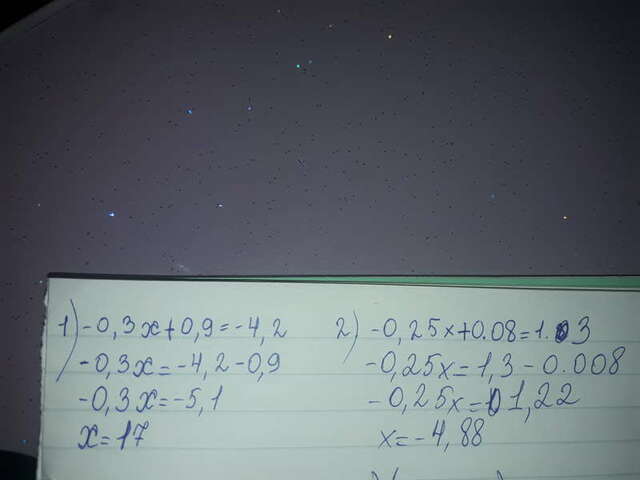 1) -0,3x+0,9=-4,2
-0,3x=-4,2-0,9
-0,3x=-5,1
x=17
2) -0,25x+0.08=1.3
-0,25x=1,3-0.008
-0,25x=1,22
x=-4,88